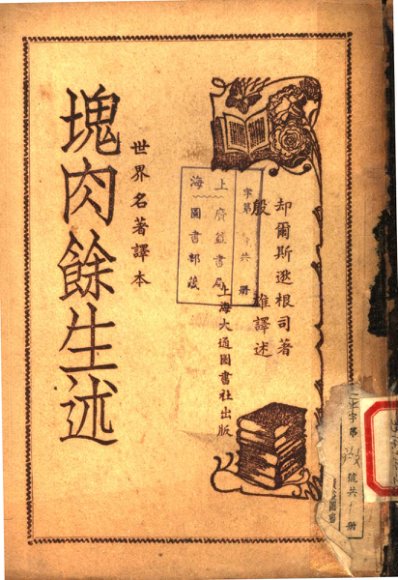 塊肉餘生述
世界名著譯本
却爾斯迭根司著
殷雄譯述
上海大通圖書社出版
上海
圖書部
字第
共 冊
字第
號共
冊